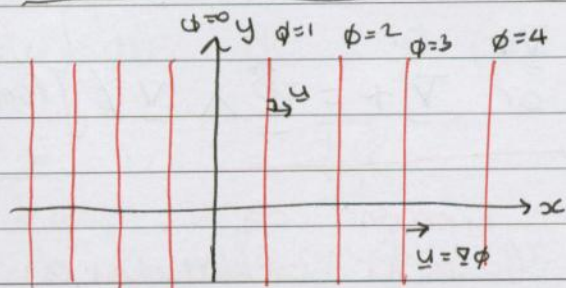 ϕ=0 y ϕ=1 ϕ=2 ϕ=3 ϕ=4
u
x
u = ∇ϕ